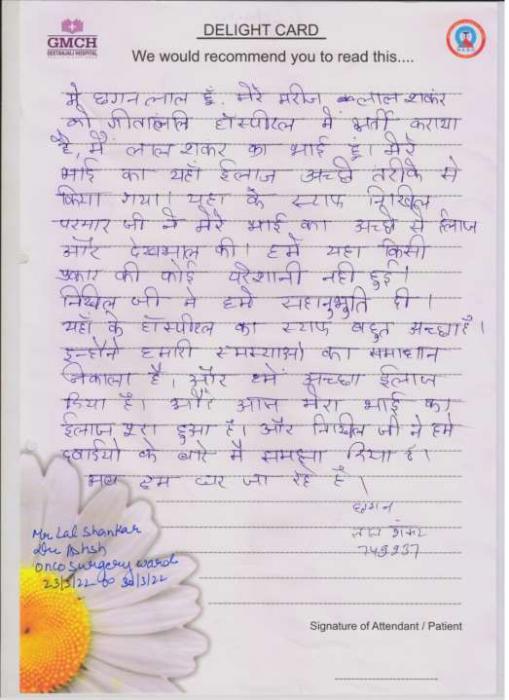 GMCH
GEETANJALI HOSPITAL
DELIGHT CARD
We would recommend you to read this....
मैं छगन लाल हूं. मेरे मरीज लाल शंकर
को गीतांजलि हॉस्पीटल में भर्ती कराया
है, मैं लाल शंकर का भाई हूं। मेरे
भाई का यहाँ ईलाज अच्छे तरीके से
किया गया। यहा के स्टाफ निखिल
परमार जी ने मेरे भाई का अच्छे से ईलाज
और देखभाल की। हमे यहा किसी
प्रकार की कोई परेशानी नही हुई।
निखिल जी ने हमे सहानुभुति दी।
यहाँ के हॉस्पीटल का स्टाफ बहुत अच्छा है।
इन्होंने हमारी समस्याओ का समाधान
निकाला है, और हमें अच्छा ईलाज
दिया है। और आज मेरा भाई का
ईलाज पूरा हुआ है। और निखिल जी ने हमे
दवाईयो के बारे मे समझा दिया है।
अब हम घर जा रहे है।
छगन
लाल शंकर
Mr Lal Shankar
onco surgery ward
23/3/22 to 30/3/22
Signature of Attendant / Patient